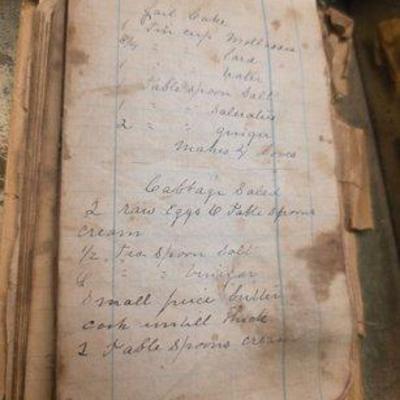 Jail Cake
1 Tin cup Mollasses
3/4 " " Lard
1 " " Water
Tablespoon Salt
1 " " Saleratus
2 " " ginger
Makes 4 Loaves
Cabbage Salad
2 raw Eggs 6 Table Spoons
cream
1/2 Tea Spoon Salt
6 " " Vinegar
Small piece butter
cook untill thick
2 Table Spoons cream